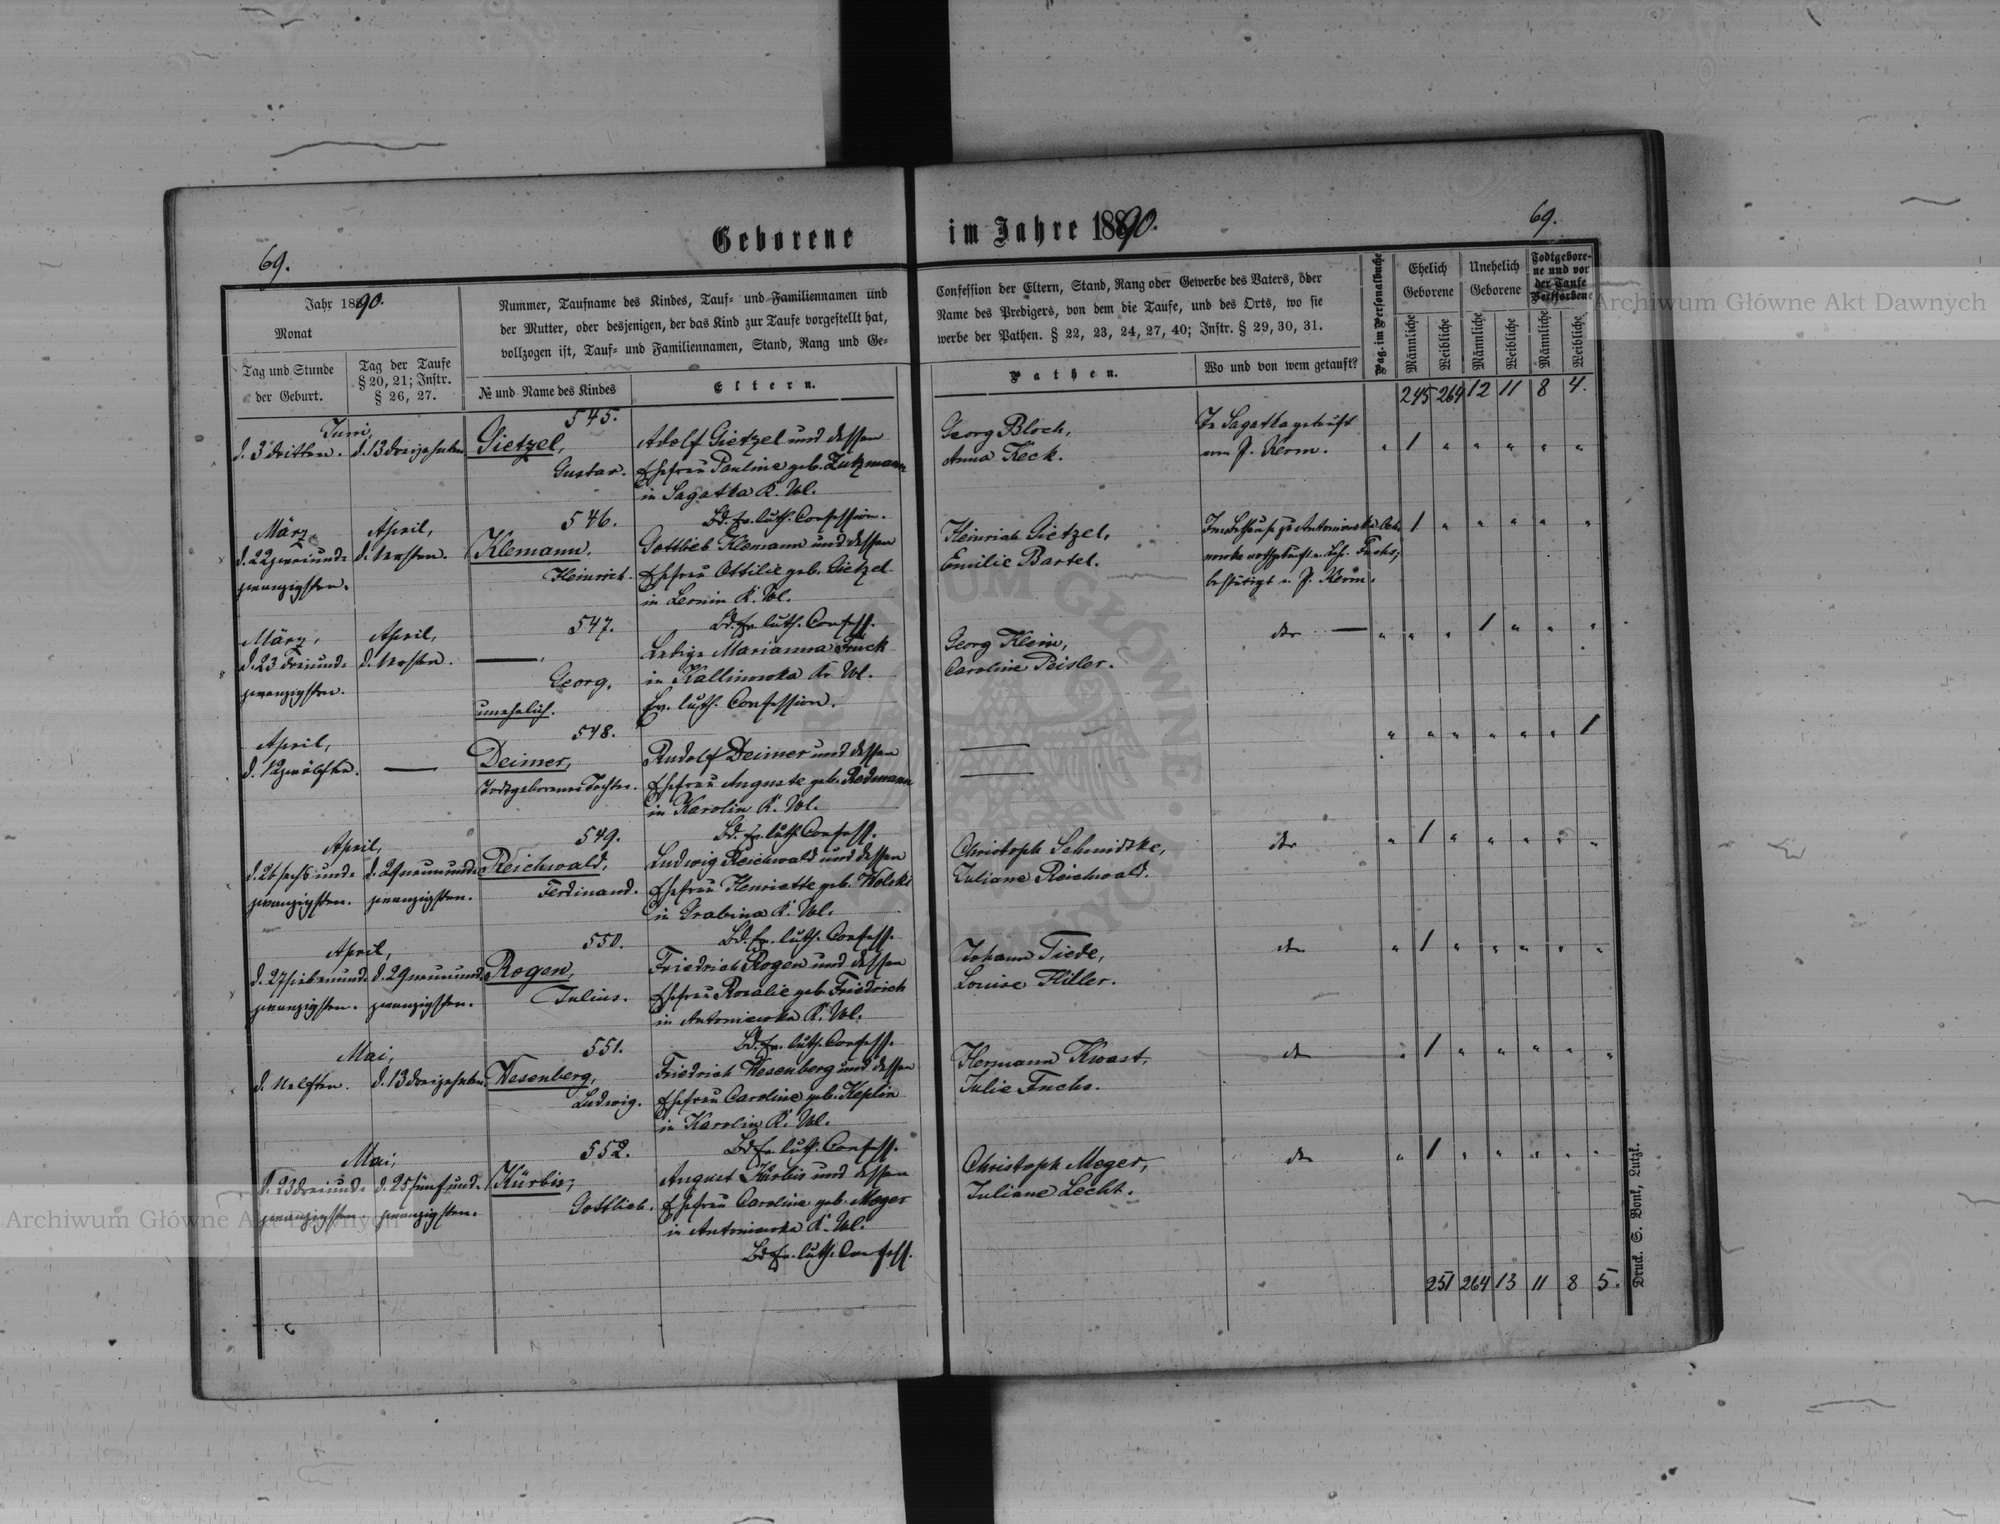 Geborene im Jahre 1890.
69.
69.
Jahr 1890.
Monat
Tag und Stunde
der Geburt.
Tag der Taufe
§ 20, 21; Instr.
§ 26, 27.
Nummer, Taufname des Kindes, Tauf- und Familiennamen und
der Mutter, oder desjenigen, der das Kind zur Taufe vorgestellt hat,
vollzogen ist, Tauf- und Familiennamen, Stand, Rang und Ge-
№ und Name des Kindes
Eltern.
Confession der Eltern, Stand, Rang oder Gewerbe des Vaters, oder
Name des Predigers, von dem die Taufe, und des Orts, wo sie
werbe der Pathen. § 22, 23, 24, 27, 40; Instr. § 29, 30, 31.
Pathen.
Wo und von wem getauft?
Pag. im Personalbuche
Ehelich
Geborene
Unehelich
Geborene
Todtgebore-
ne und vor
der Taufe
Verstorbene
Männliche
Weibliche
Männliche
Weibliche
Männliche
Weibliche
245 264 12 11 8 4.
Juni,
d. 3 dritten. d. 13 dreizehnten
545.
Gietzel,
Gustav.
Adolf Gietzel und dessen
Ehefrau Pauline geb. Lutzmann
in Sagatka K. Wol.
Bd. Ev. luth. Confession.
Georg Bloch,
Anna Keck.
In Sagatka getauft
von P. Kerm.
" 1 " " " " "
März
d. 22 zweiund-
zwanzigsten.
April,
d. 1 ersten.
546.
Klemann,
Heinrich.
Gottlieb Klemann und dessen
Ehefrau Ottilie geb. Gietzel
in Leonin K. Wol.
Bd. Ev. luth. Confess.
Heinrich Gietzel,
Emilie Bartel.
bestätigt v. P. Kerm.
1 " " " " "
März,
d. 23 dreiund-
zwanzigsten.
April,
d. 1 ersten.
547.
Georg,
unehelich.
Ledige Marianna Frick
in Kallinowka K. Wol.
Ev. luth. Confession.
Georg Klein,
Caroline Peisler.
dtr
" " " 1 " " "
April,
d. 12 zwölften.
548.
Deimer,
Todtgeborene Tochter.
Rudolf Deimer und dessen
Ehefrau Auguste geb. Redmann
in Karolin K. Wol.
Bd. Ev. luth. Confess.
" " " " " " 1
April,
d. 26 sechsund-
zwanzigsten.
d. 29 neunund-
zwanzigsten.
549.
Reichwald,
Ferdinand.
Ludwig Reichwald und dessen
Ehefrau Henriette geb. Wolski
in Grabina K. Wol.
Bd. Ev. luth. Confess.
Christoph Schmidtke,
Juliane Reichwald.
dtr
" 1 " " " " "
April,
d. 27 siebenund-
zwanzigsten.
d. 29 neunund-
zwanzigsten.
550.
Rogen,
Julius.
Friedrich Rogen und dessen
Ehefrau Rosalie geb. Friedrich
in Antoniewka K. Wol.
Bd. Ev. luth. Confess.
Johann Tiede,
Louise Hiller.
dtr
" 1 " " " " "
Mai,
d. 11 elften. d. 13 dreizehnten
551.
Wesenberg,
Ludwig.
Friedrich Wesenberg und dessen
Ehefrau Caroline geb. Keplin
in Karolin K. Wol.
Bd. Ev. luth. Confess.
Hermann Kwast,
Julie Fuchs.
dtr
" 1 " " " " "
Mai,
d. 23 dreiund-
zwanzigsten.
d. 25 fünfund-
zwanzigsten.
552.
Kürbis,
Gottlieb.
August Kürbis und dessen
Ehefrau Caroline geb. Meger
in Antoniewka K. Wol.
Bd. Ev. luth. Confess.
Christoph Meger,
Juliane Lecht.
dtr
" 1 " " " " "
251 264 13 11 8 5.
Druck. S. Bonk, Lutzk.
Archiwum Główne Akt Dawnych
Archiwum Główne Akt Dawnych